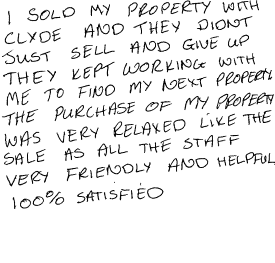 I SOLD MY PROPERTY WITH
CLYDE AND THEY DIDNT
JUST SELL AND GIVE UP
THEY KEPT WORKING WITH
ME TO FIND MY NEXT PROPERTY
THE PURCHASE OF MY PROPERTY
WAS VERY RELAXED LIKE THE
SALE AS ALL THE STAFF
VERY FRIENDLY AND HELPFUL
100% SATISFIED